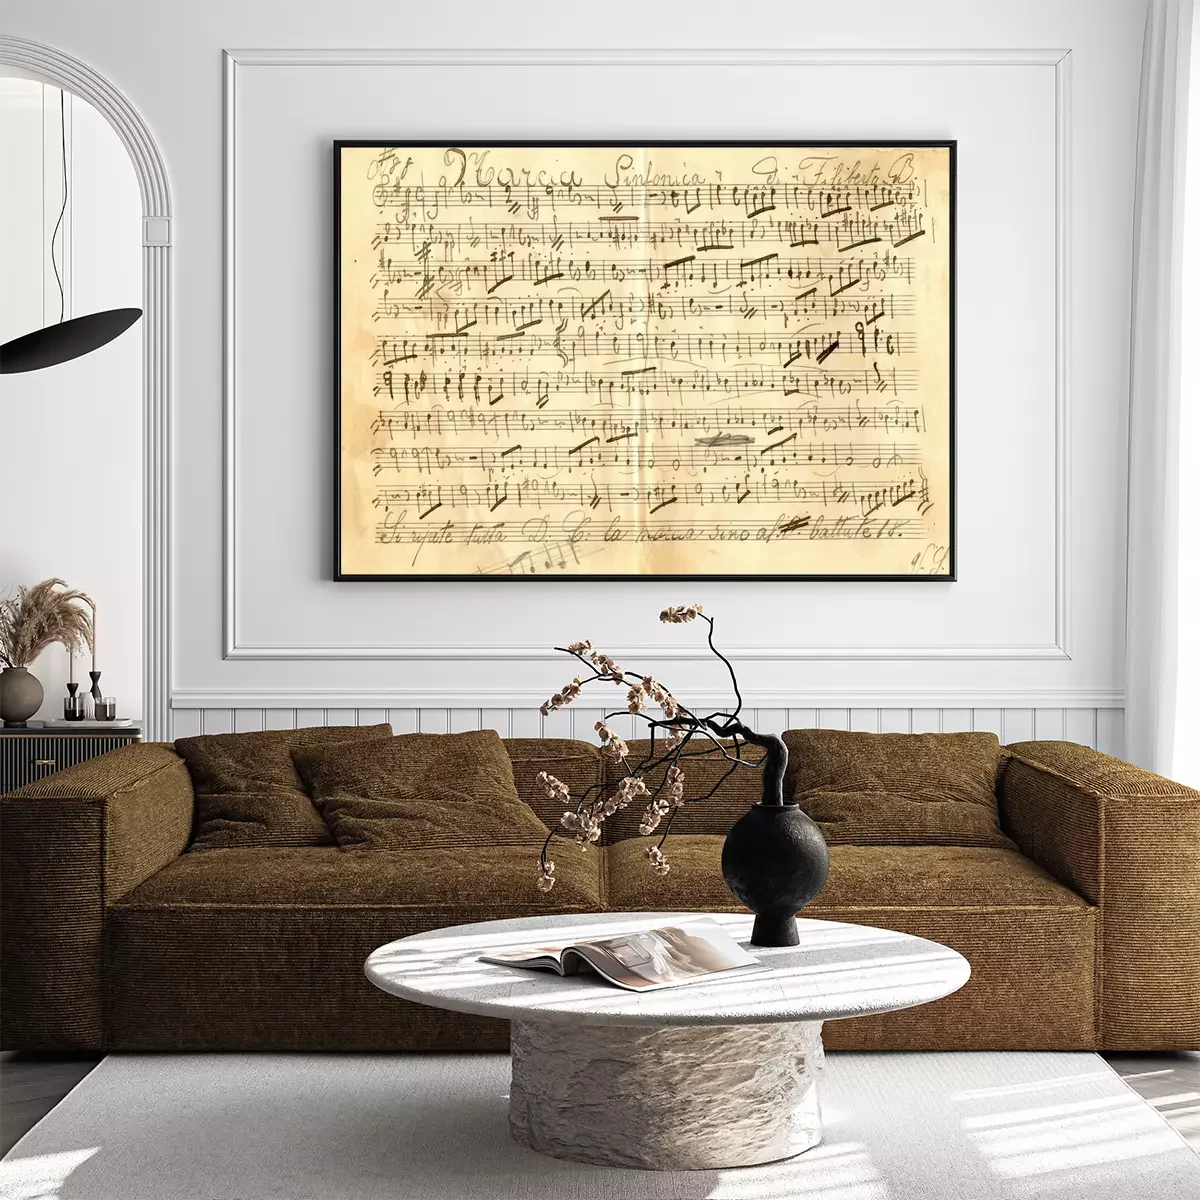 Nº 88 Marcia Sinfonica di Filiberto B.
Si ripete tutta D. C. la marcia sino al battute 18.